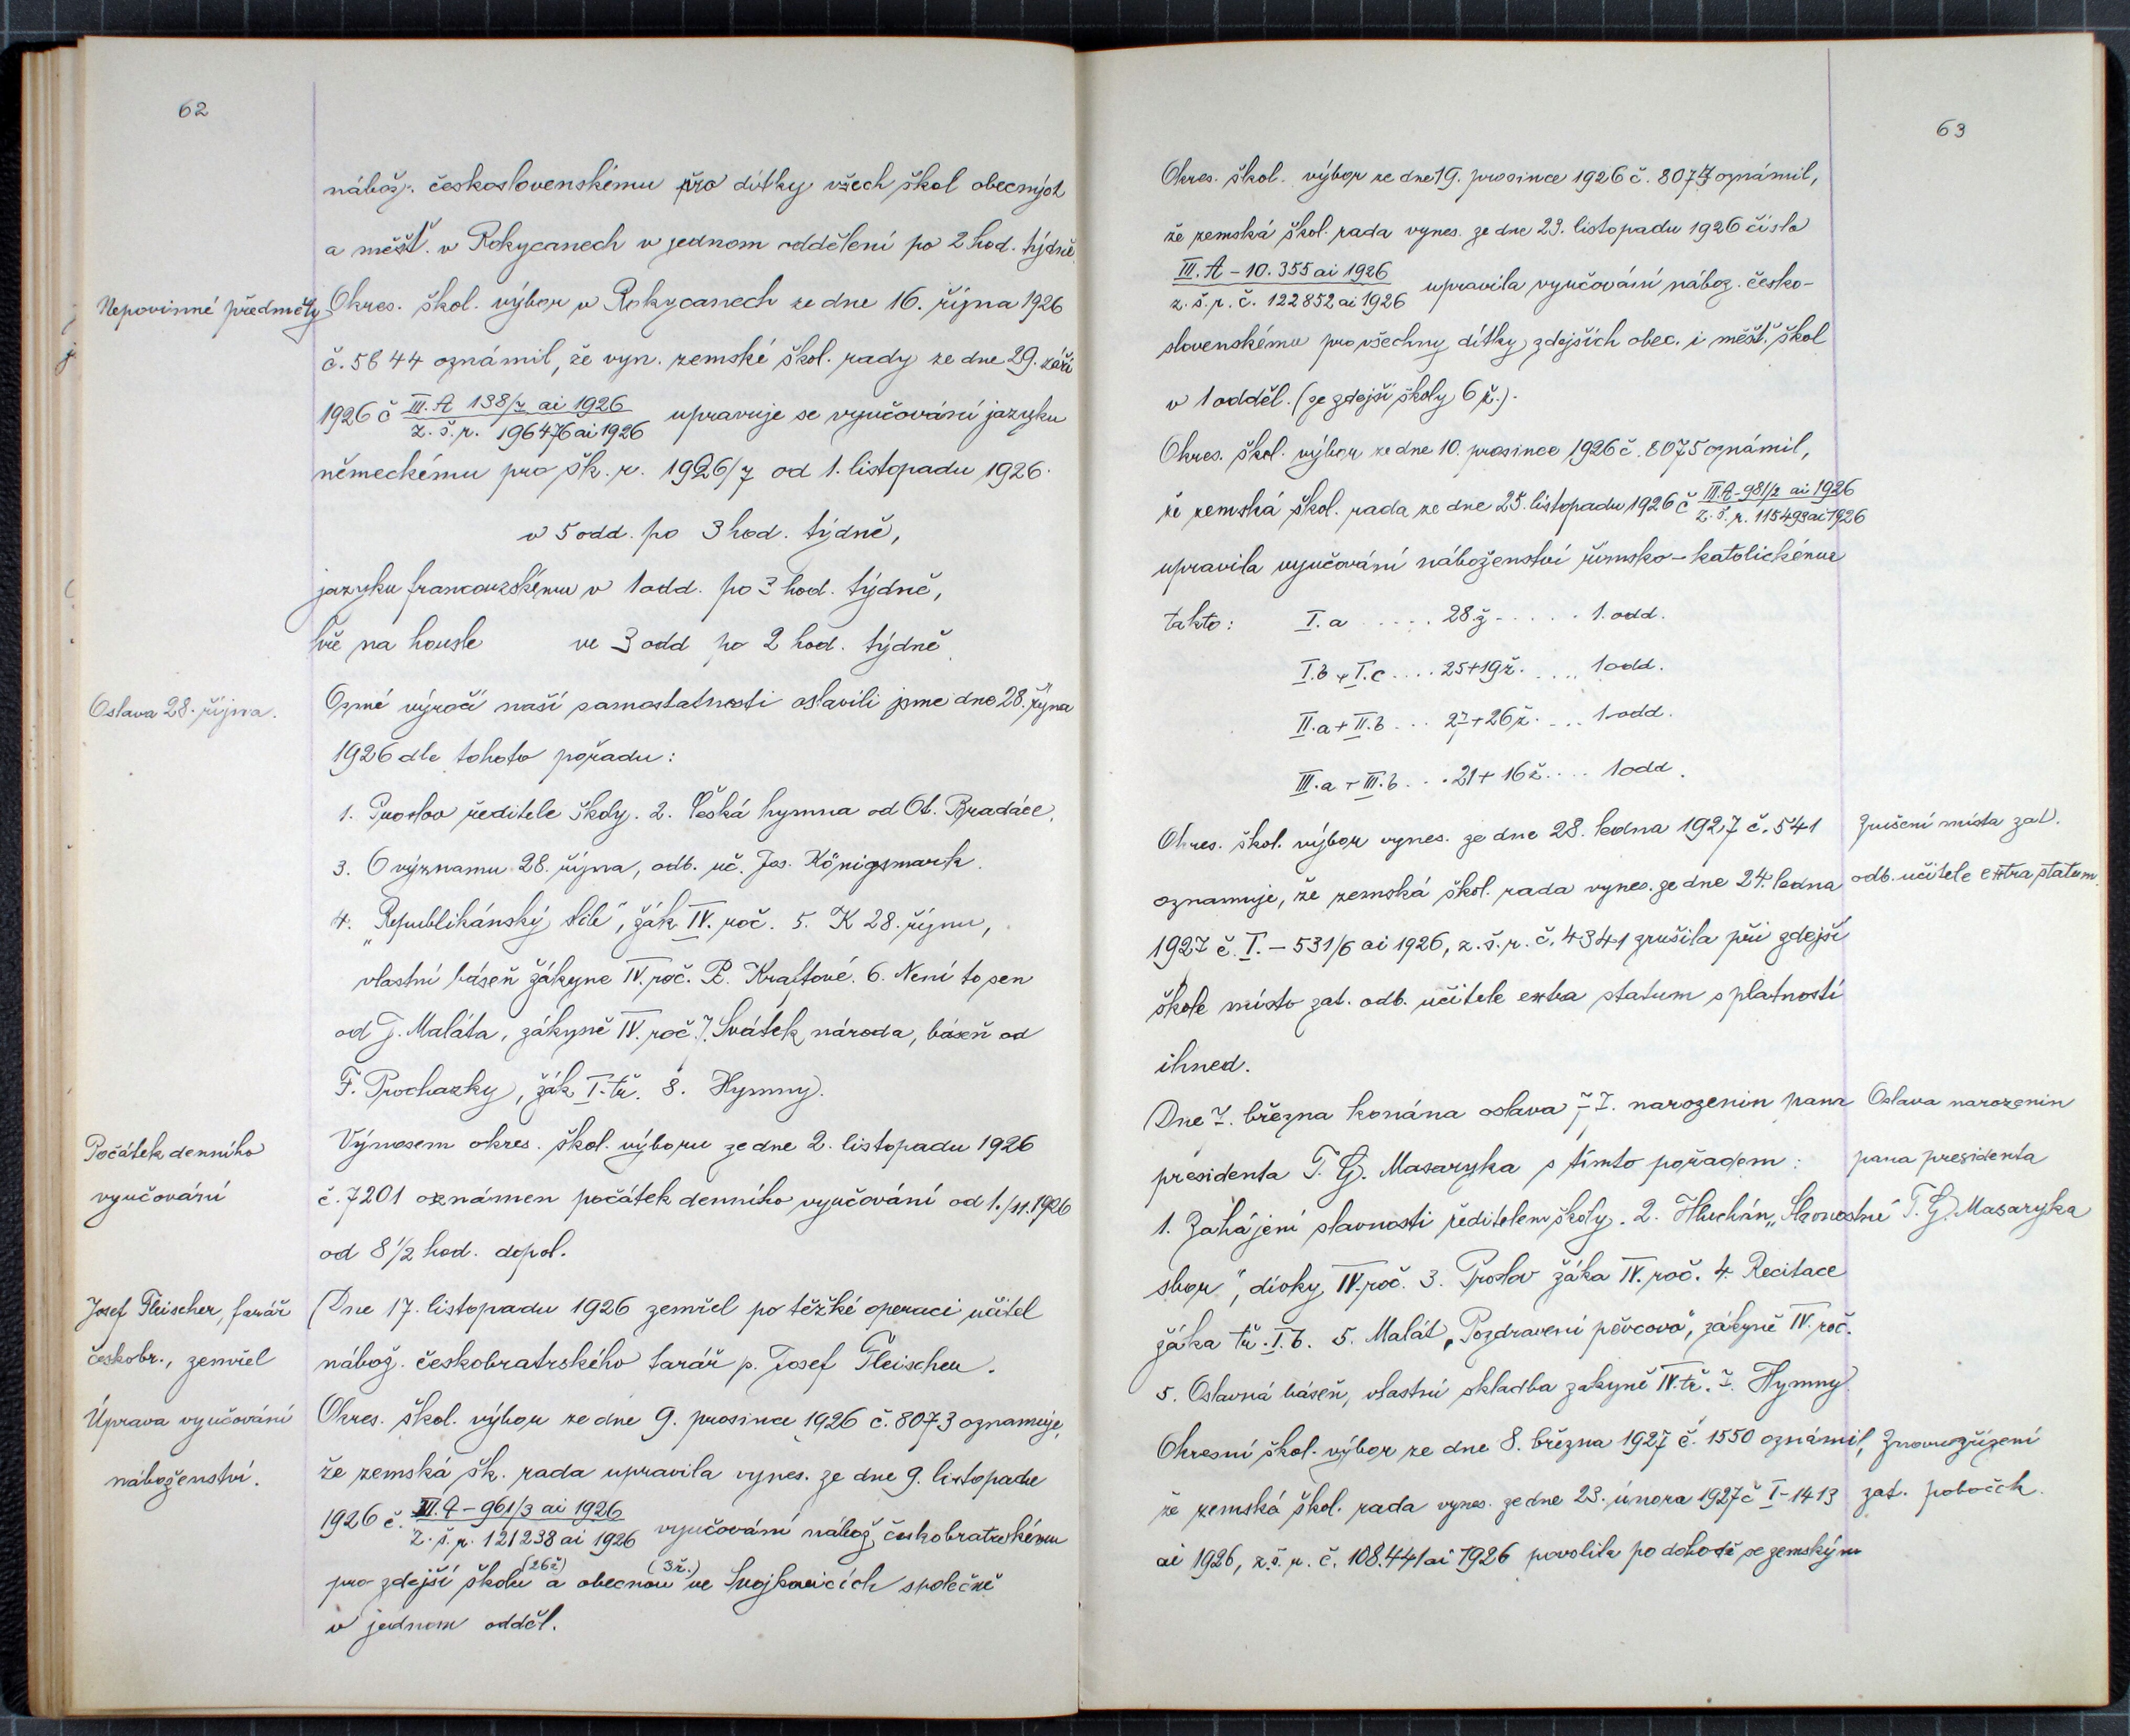 62
nábož. československému pro dítky všech škol obecných
a měšť. v Rokycanech v jednom oddělení po 2 hod. týdně.
Nepovinné předměty
Okres. škol. výbor v Rokycanech ze dne 16. října 1926
č. 5844 oznámil, že vyn. zemské škol. rady ze dne 29. září
1926 č III. A 138/2 ai 1926
z. š. r. 196476 ai 1926 upravuje se vyučování jazyku
německému pro šk. r. 1926/7 od 1. listopadu 1926.
v 5 odd. po 3 hod. týdně,
jazyku francouzskému v 1 odd. po 3 hod. týdně,
hře na housle ve 3 odd po 2 hod. týdně.
Oslava 28. října.
Osmé výročí naší samostatnosti oslavili jsme dne 28. října
1926 dle tohoto pořadu:
1. Proslov ředitele školy. 2. Česká hymna od Ot. Bradáče.
3. O významu 28. října, odb. uč. Jos. Königsmark.
4. „Republikánský slib", žák IV. roč. 5. K 28. říjnu,
vlastní báseň žákyne IV. roč. P. Kraftové. 6. Není to sen
od J. Maláta, žákyně IV. roč. 7. Svátek národa, báseň od
F. Prochazky, žák I. tř. 8. Hymny.
Počátek denního
vyučování
Výnosem okres. škol. výboru ze dne 2. listopadu 1926
č. 7201 oznámen počátek denního vyučování od 1./11. 1926
od 8 1/2 hod. dopol.
Josef Fleischer, farář
českobr., zemřel
Dne 17. listopadu 1926 zemřel po těžké operaci učitel
nábož. českobratrského farář p. Josef Fleischer.
Úprava vyučování
náboženství.
Okres. škol. výbor ze dne 9. prosince 1926 č. 8073 oznamuje,
že zemská šk. rada upravila vynes. ze dne 9. listopadu
1926 č. III. A – 961/3 ai 1926
z. š. r. 121238 ai 1926 vyučování nábož. českobratrskému
pro zdejší školu (26 ž) a obecnou (3 ž.) ve Svojkovicích společně
v jednom odděl.
63
Okres. škol. výbor ze dne 19. prosince 1926 č. 8074 oznámil,
že zemská škol. rada vynes. ze dne 23. listopadu 1926 číslo
III. A – 10.355 ai 1926
z. š. r. č. 122852 ai 1926 upravila vyučování nábož. česko-
slovenskému pro všechny dítky zdejších obec. i měšť. škol
v 1 odděl. (ze zdejší školy 6 ž.).
Okres. škol. výbor ze dne 10. prosince 1926 č. 8075 oznámil,
že zemská škol. rada ze dne 25. listopadu 1926 č III. A – 981/2 ai 1926
z. š. r. 115493 ai 1926
upravila vyučování náboženství římsko-katolickému
takto: I. a ..... 28 ž ...... 1. odd.
I. b + I. c .... 25+19 ž. .... 1 odd.
II. a + II. b ... 27+26 ž. ... 1. odd.
III. a + III. b ... 21 + 16 ž. ... 1 odd.
Okres. škol. výbor vynes. ze dne 28. ledna 1927 č. 541
oznamuje, že zemská škol. rada vynes. ze dne 24. ledna
1927 č. I. – 531/6 ai 1926, z. š. r. č. 4341 zrušila při zdejší
škole místo zat. odb. učitele extra statum s platností
ihned.
Zrušení místa zat.
odb. učitele extra statum.
Dne 7. března konána oslava 77. narozenin pana
presidenta T. G. Masaryka s tímto pořadem:
1. Zahájení slavnosti ředitelem školy. 2. Hluchán „Slavnostní
sbor", dívky IV. roč. 3. Proslov žáka IV. roč. 4. Recitace
žáka tř. I. b. 5. Malát „Pozdravení pěvcovo", žákyně IV. roč.
5. Oslavná báseň, vlastní skladba žakyně IV. tř. 7. Hymny.
Oslava narozenin
pana presidenta
T. G. Masaryka
Okresní škol. výbor ze dne 8. března 1927 č. 1550 oznámil,
že zemská škol. rada vynes. ze dne 23. února 1927 č I – 1413
ai 1926, z. š. r. č. 108.441 ai 1926 povolila po dohodě se zemským
Znovuzřízení
zat. poboček.